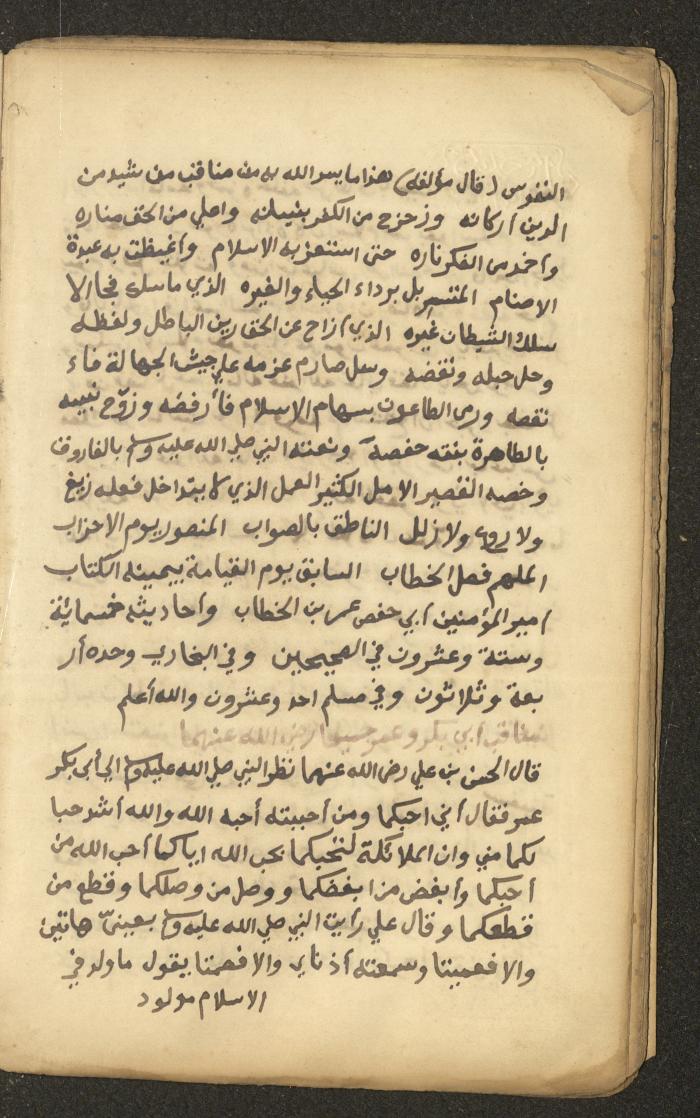 النفوس (قال مؤلفه) هذا ما يسر الله به من مناقب من شيد من
الدين أركانه وزحزح من الكفر بنيانه واعلي من الحق مناره
واخمد من الفكر ناره حتى استعز به الاسلام واغيظت به عبدة
الاصنام المتسربل برداء الحياء والغيره الذي ما سلك فجا الا
سلك الشيطان غيره الذي أزاح عن الحق رين الباطل ولفظه
وحل حبله ونقضه وسل صارم عزمه علي جيش الجهالة فاء
نقصه ورمى الطاعون بسهام الاسلام فأرفضه وزوّج نبيه
بالطاهرة بنته حفصة ونعته النبي صلي الله عليه وسلم بالفاروق
وخصه القصير الامل الكثير العمل الذي لا يتداخل فعله زيغ
ولا روع ولا زلل الناطق بالصواب المنصور يوم الاحزاب
الملهم فصل الخطاب السابق يوم القيامة بيمينه الكتاب
أمير المؤمنين أبي حفص عمر بن الخطاب وأحاديثه خمسمائة
وستة وعشرون في الصحيحين وفي البخاري وحده أر
بعة وثلاثون وفي مسلم احد وعشرون والله أعلم
مناقب أبي بكر وعمر جميعا رضي الله عنهما
قال الحسن بن علي رضي الله عنهما نظر النبي صلي الله عليه وسلم الي أبي بكر
عمر فقال أني احبكما ومن أحببته أحبه الله والله أشد حبا
لكما مني وان الملائكة لتحبكما بحب الله اياكما أحب الله من
أحبكما وأبغض من ابغضكما ووصل من وصلكما وقطع من
قطعكما وقال علي رأيت النبي صلي الله عليه وسلم بعينيّ هاتين
والا فعميتا وسمعته أذناي والا فصمتا يقول ما ولد في
الاسلام مولود